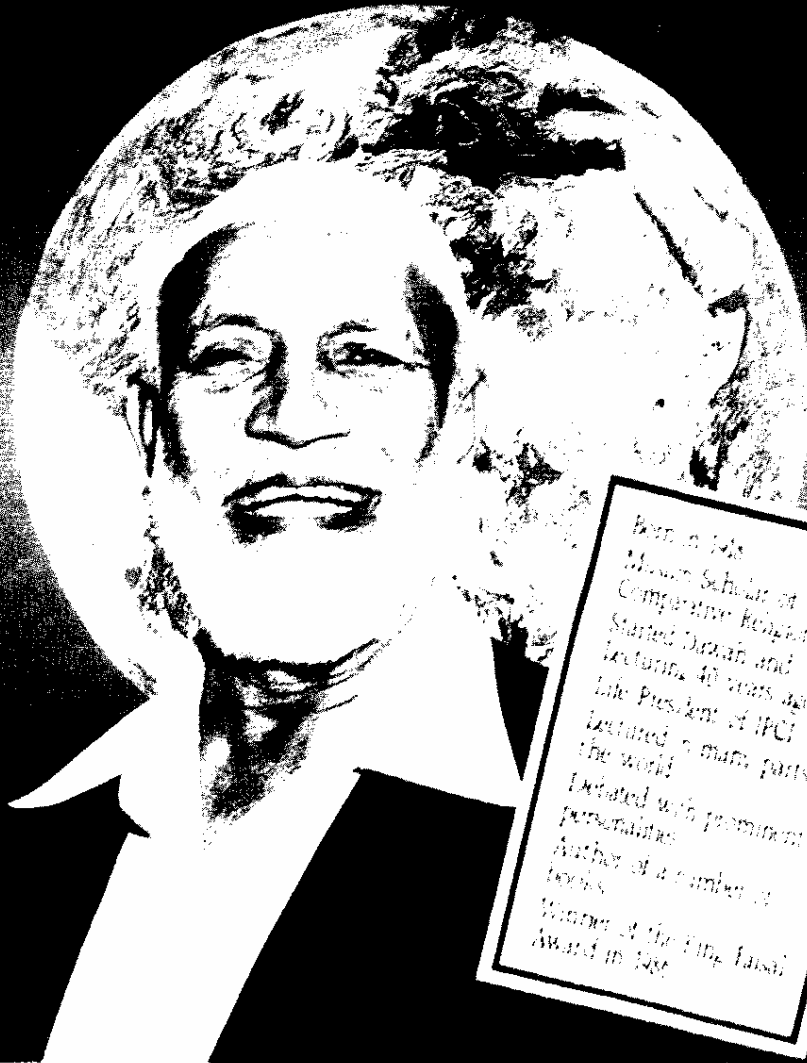 Born in 1918
Muslim Scholar of
Comparative Religion
Started Dawah and
lecturing 40 years ago
Life President of IPCI
Lectured in many parts
the world
Debated with prominent
personalities
Author of a number of
books
Winner of the King Faisal
Award in